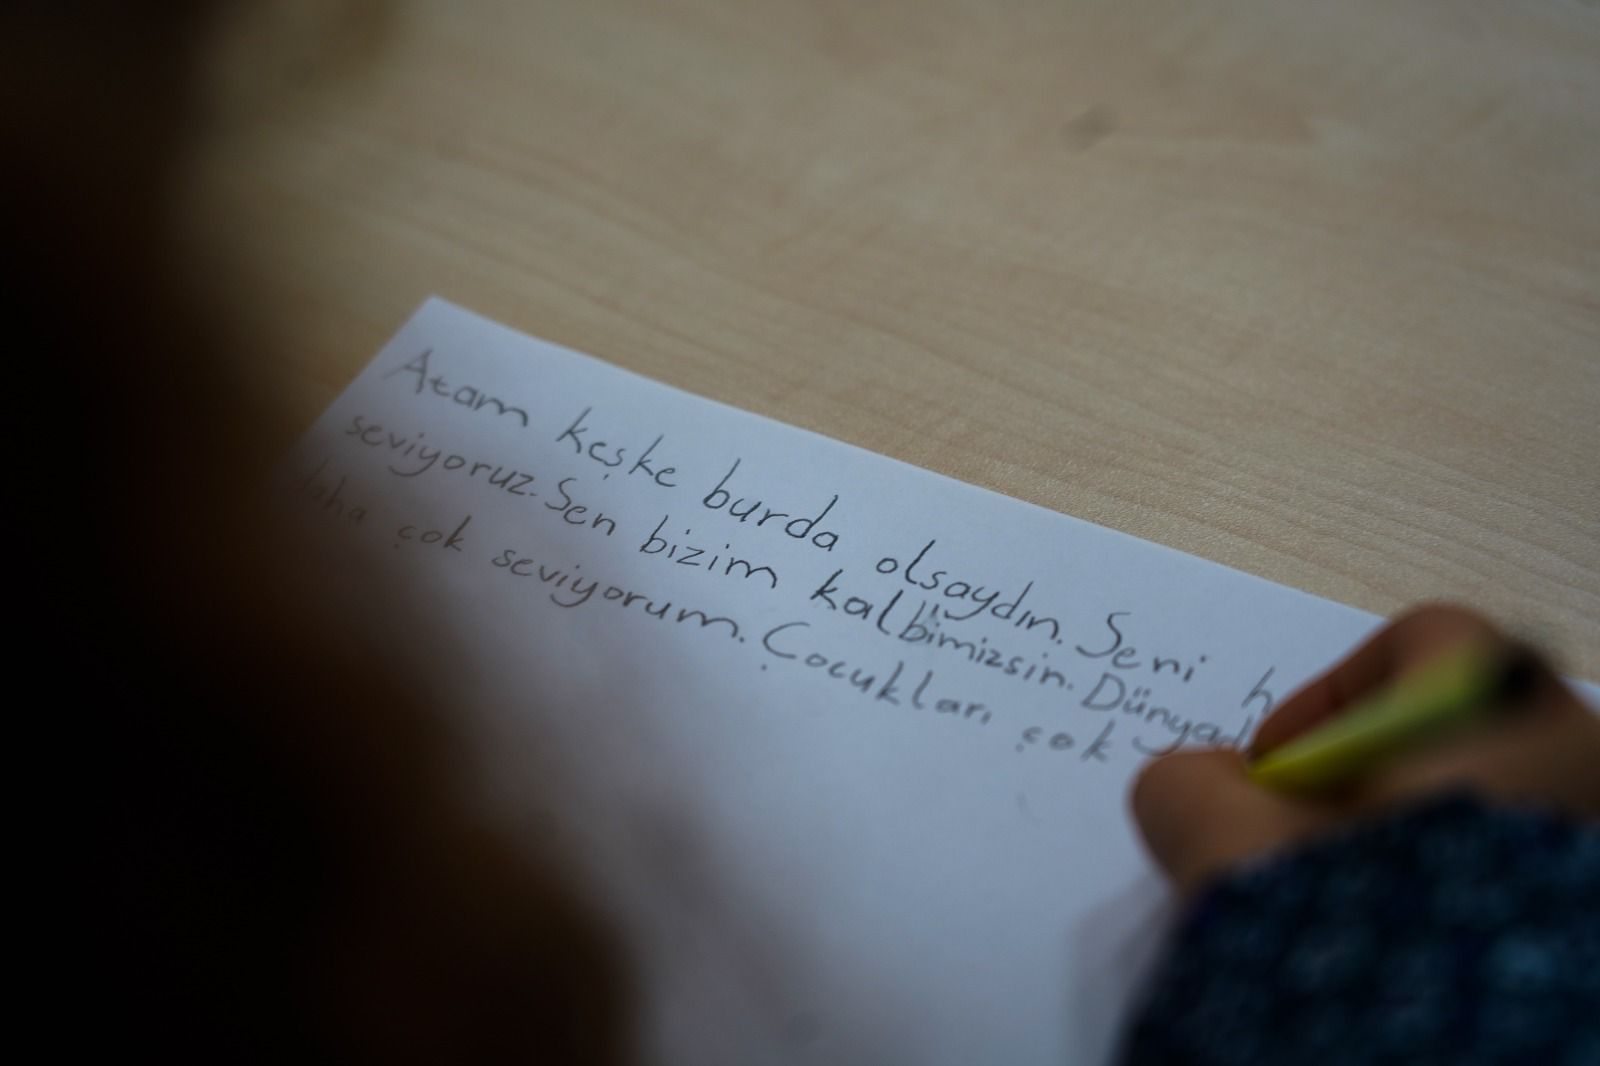 Atam keşke burda olsaydın. Seni
seviyoruz. Sen bizim kalbimizsin.
daha çok seviyorum. Çocukları çok